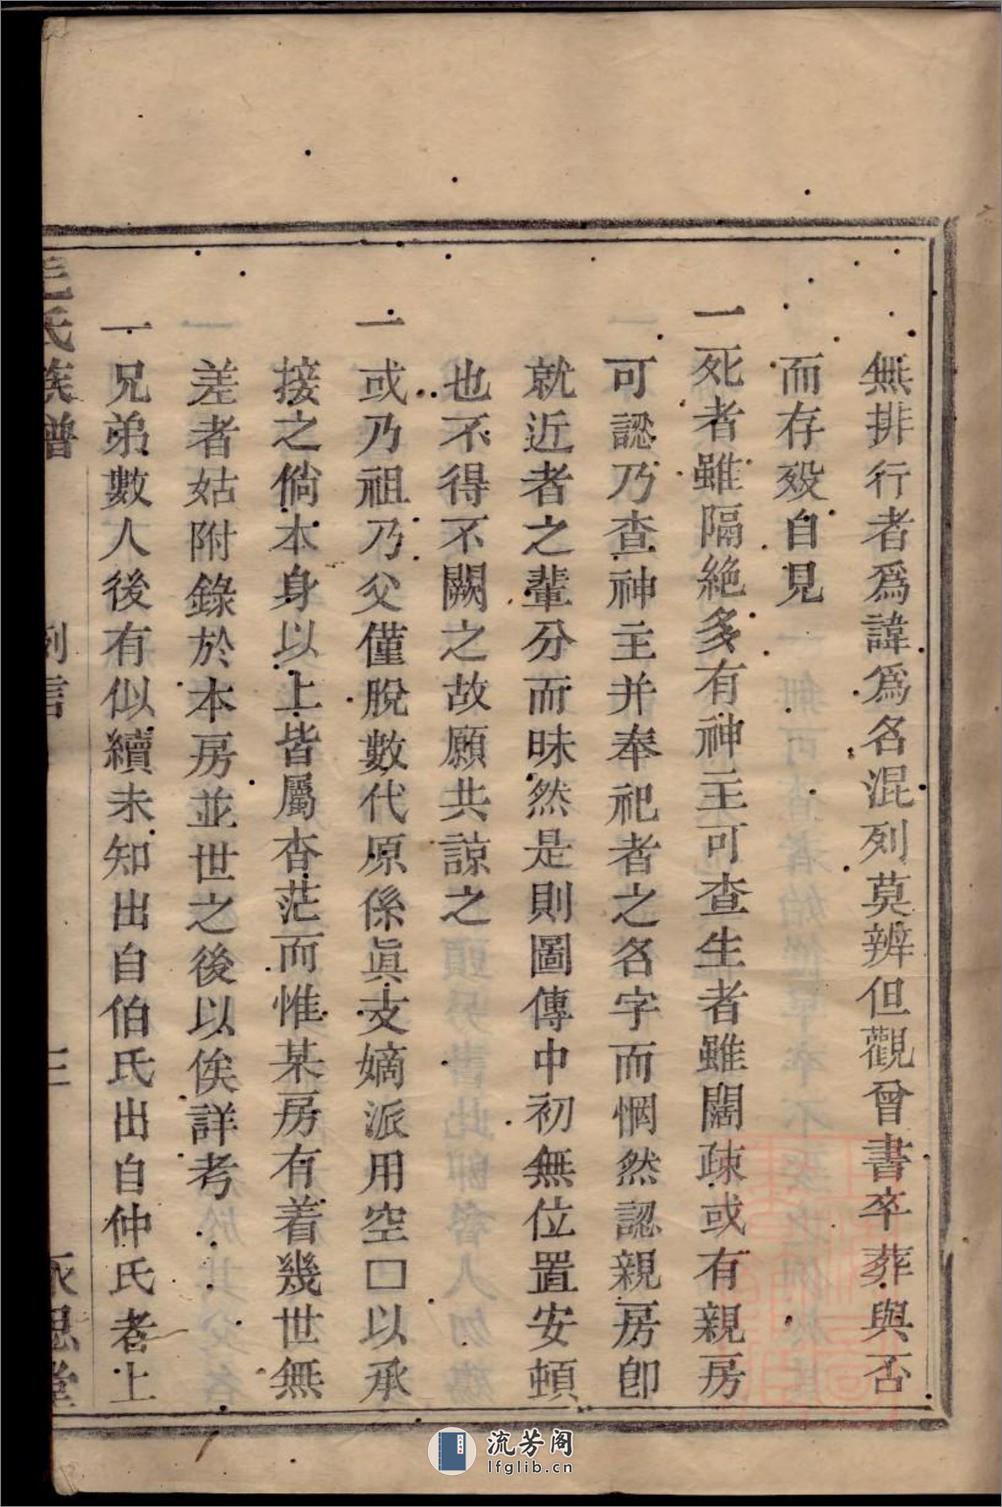 無排行者爲諱爲名混列莫辨但觀曾書卒葬與否
而存殁自見
一死者雖隔絶多有神主可查生者雖闊疎或有親房
可認乃查神主并奉祀者之名字而惘然認親房卽
就近者之輩分而昧然是則圖傳中初無位置安頓
也不得不闕之故願共諒之
一或乃祖乃父僅脫數代原係眞支嫡派用空口以承
接之倘本身以上皆屬杳茫而惟某房有着幾世無
差者姑附錄於本房並世之後以俟詳考
一兄弟數人後有似續未知出自伯氏出自仲氏者上
氏族譜 例言 三 永思堂
流芳阁
lfglib.cn